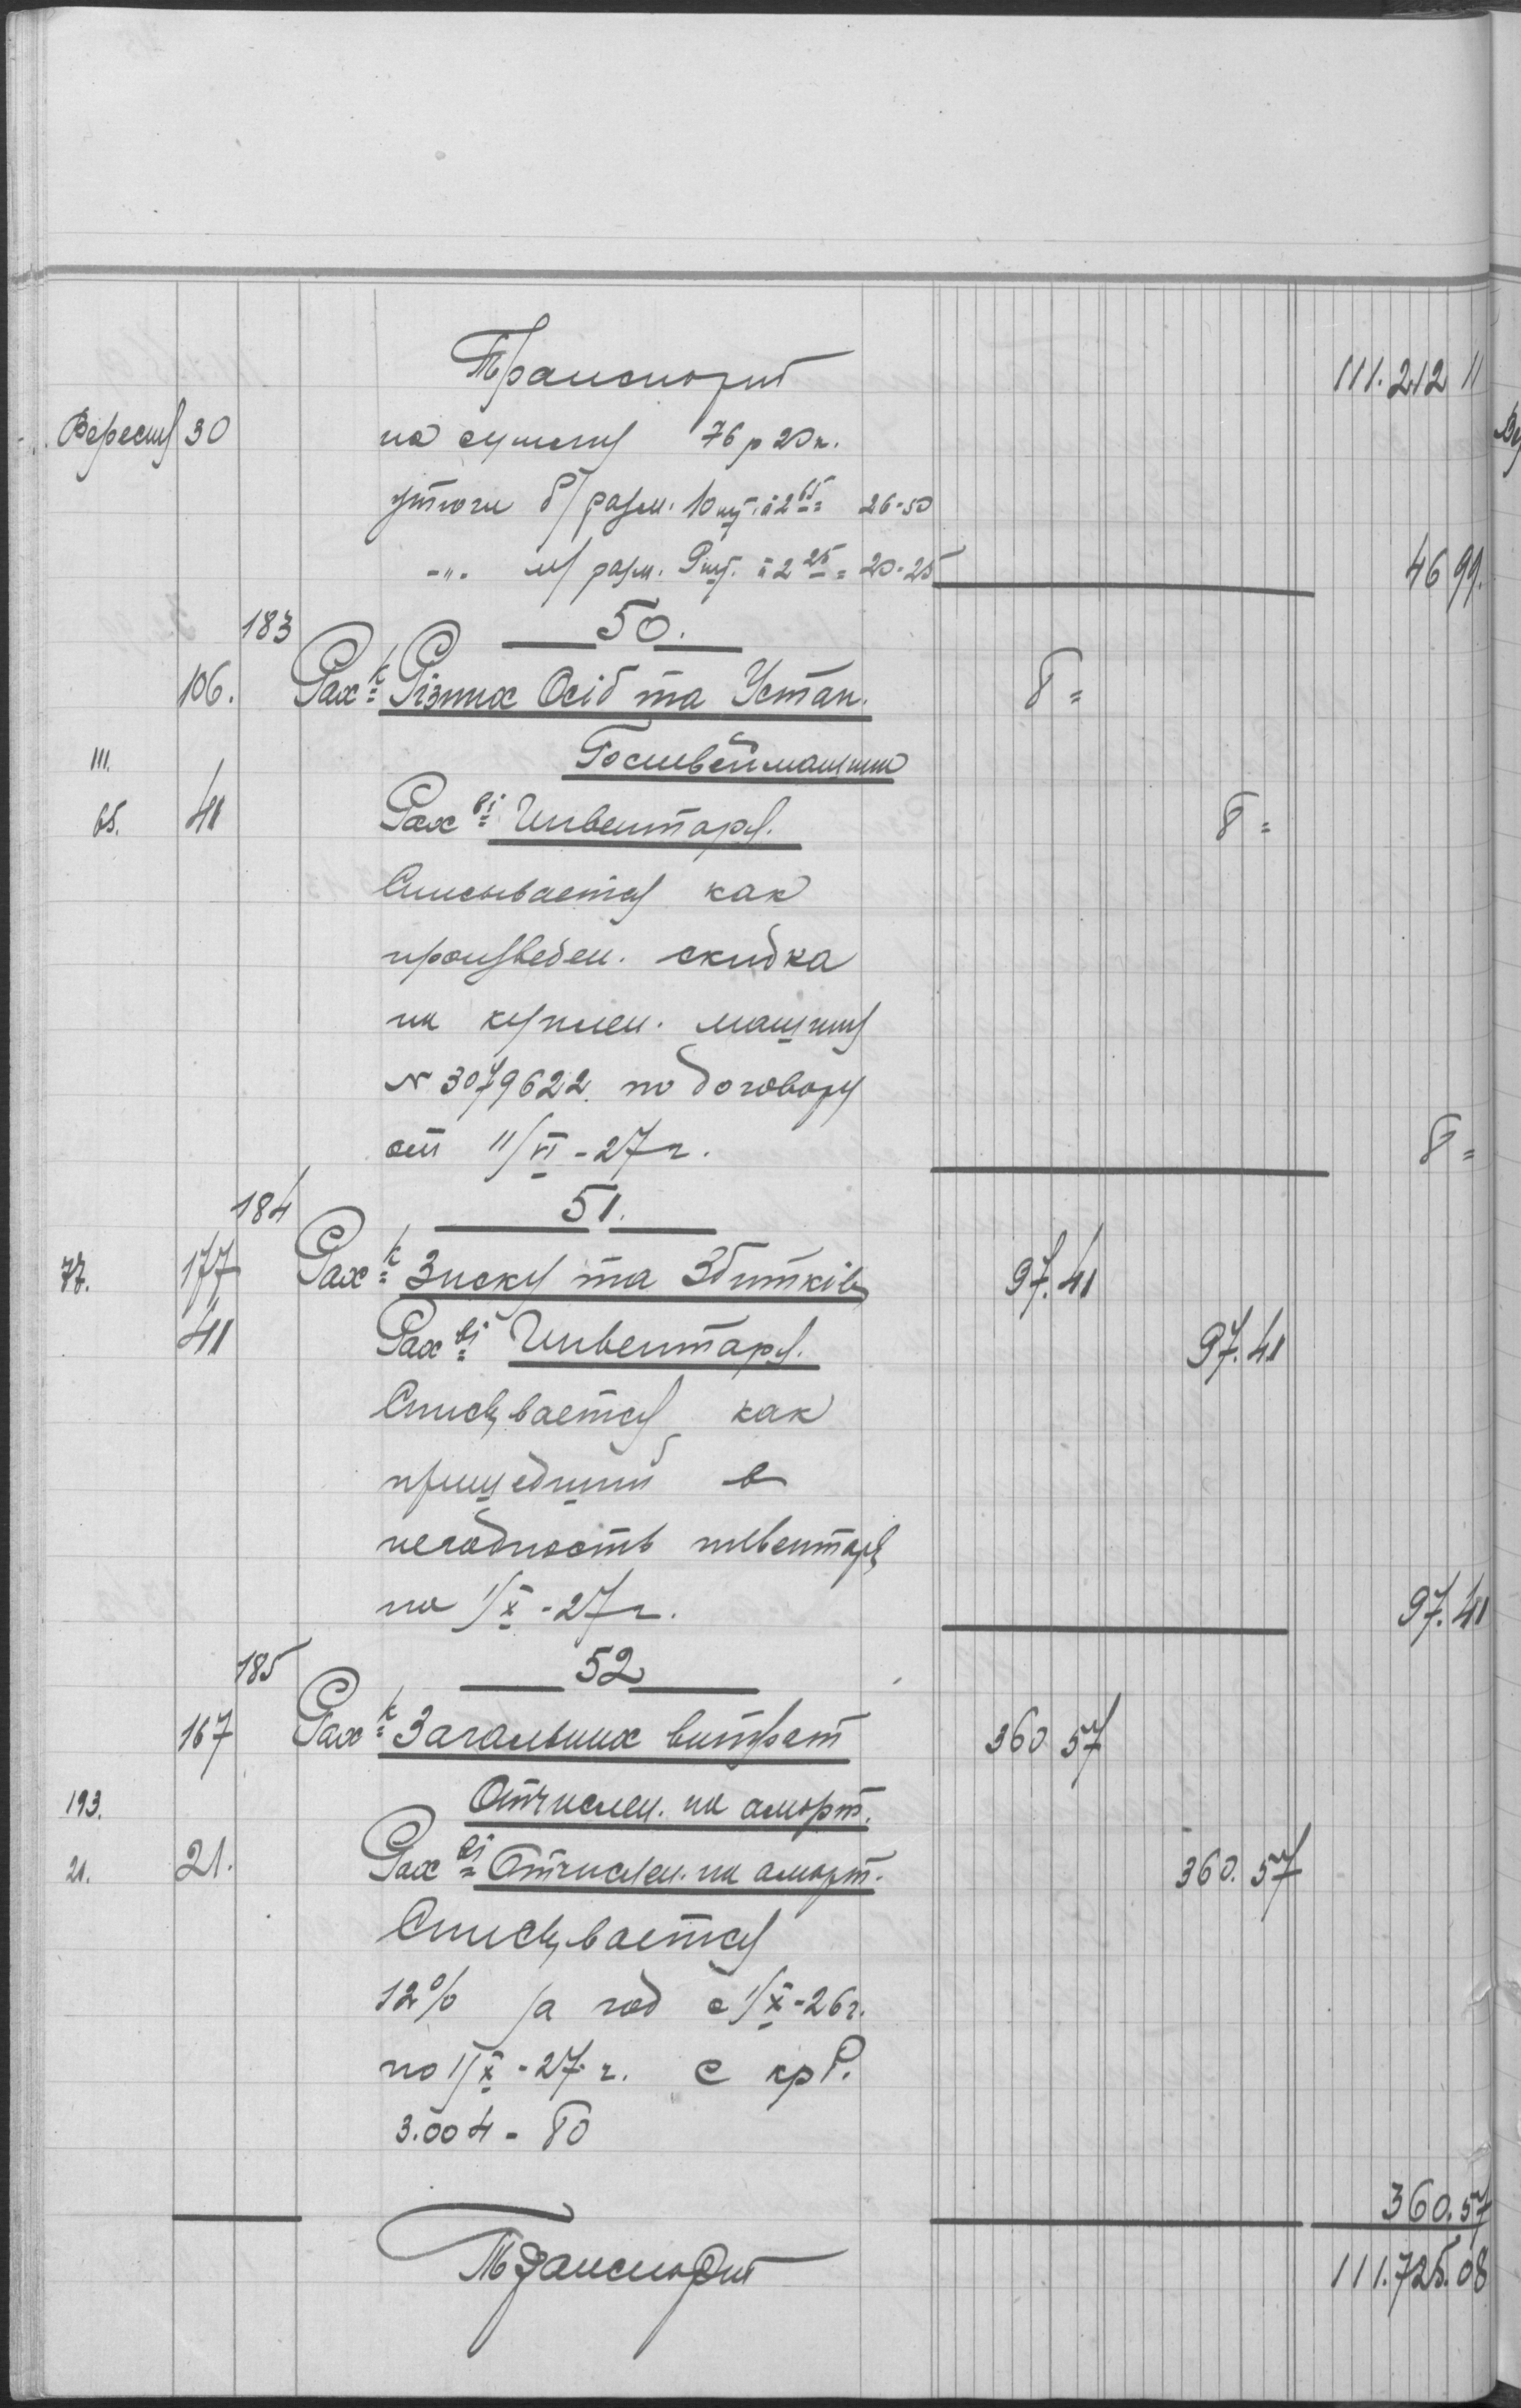 Транспорт 111.212 11
Вересня 30 на сушку 76 р 20 к.
утюги б/разм. 10 шт. à 2 65 = 26-50
-"- м/разм. 9 шт. à 2 25 = 20-25 46 99.
183 50.
106. Рах-к Різних Осіб та Устан. 8=
111. Госшвеймашин
65. 41 Рах-ві Инвентаря. 8=
Списывается как
произведен. скидка
на куплен. машину
N 3079622. по договору
от 11/VI-27 г. 8=
184 51.
77. 177 Рах-к Зиску та Збитків 97.41
41 Рах-ві Инвентаря. 97.41
Списывается как
пришедший в
негодность инвентарь
на 1/X-27 г. 97.41
185 52
167 Рах-к Загальних витрат 360 57
193. Отчислен. на аморт.
21. 21. Рах-ві Отчислен. на аморт. 360.57
Списывается
12% за год с 1/X-26 г.
по 1/X-27 г. с крб.
3.004-80
360.57
Транспорт 111.725.08